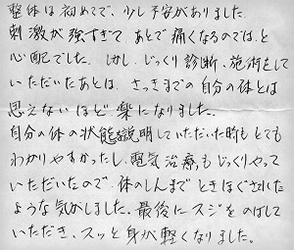 整体は初めてで、少し不安がありました。
刺激が強すぎて、あとで痛くなるのでは、と
心配でした。しかし、じっくり診断、施術をして
いただいたあとは、さっきまでの自分の体とは
思えないほど楽になりました。
自分の体の状態を説明していただいた時も、とても
わかりやすかったし、電気治療もじっくりやって
いただいたので、体のしんまでときほぐされた
ような気がしました。最後にスジをのばして
いただき、スッと身が軽くなりました。